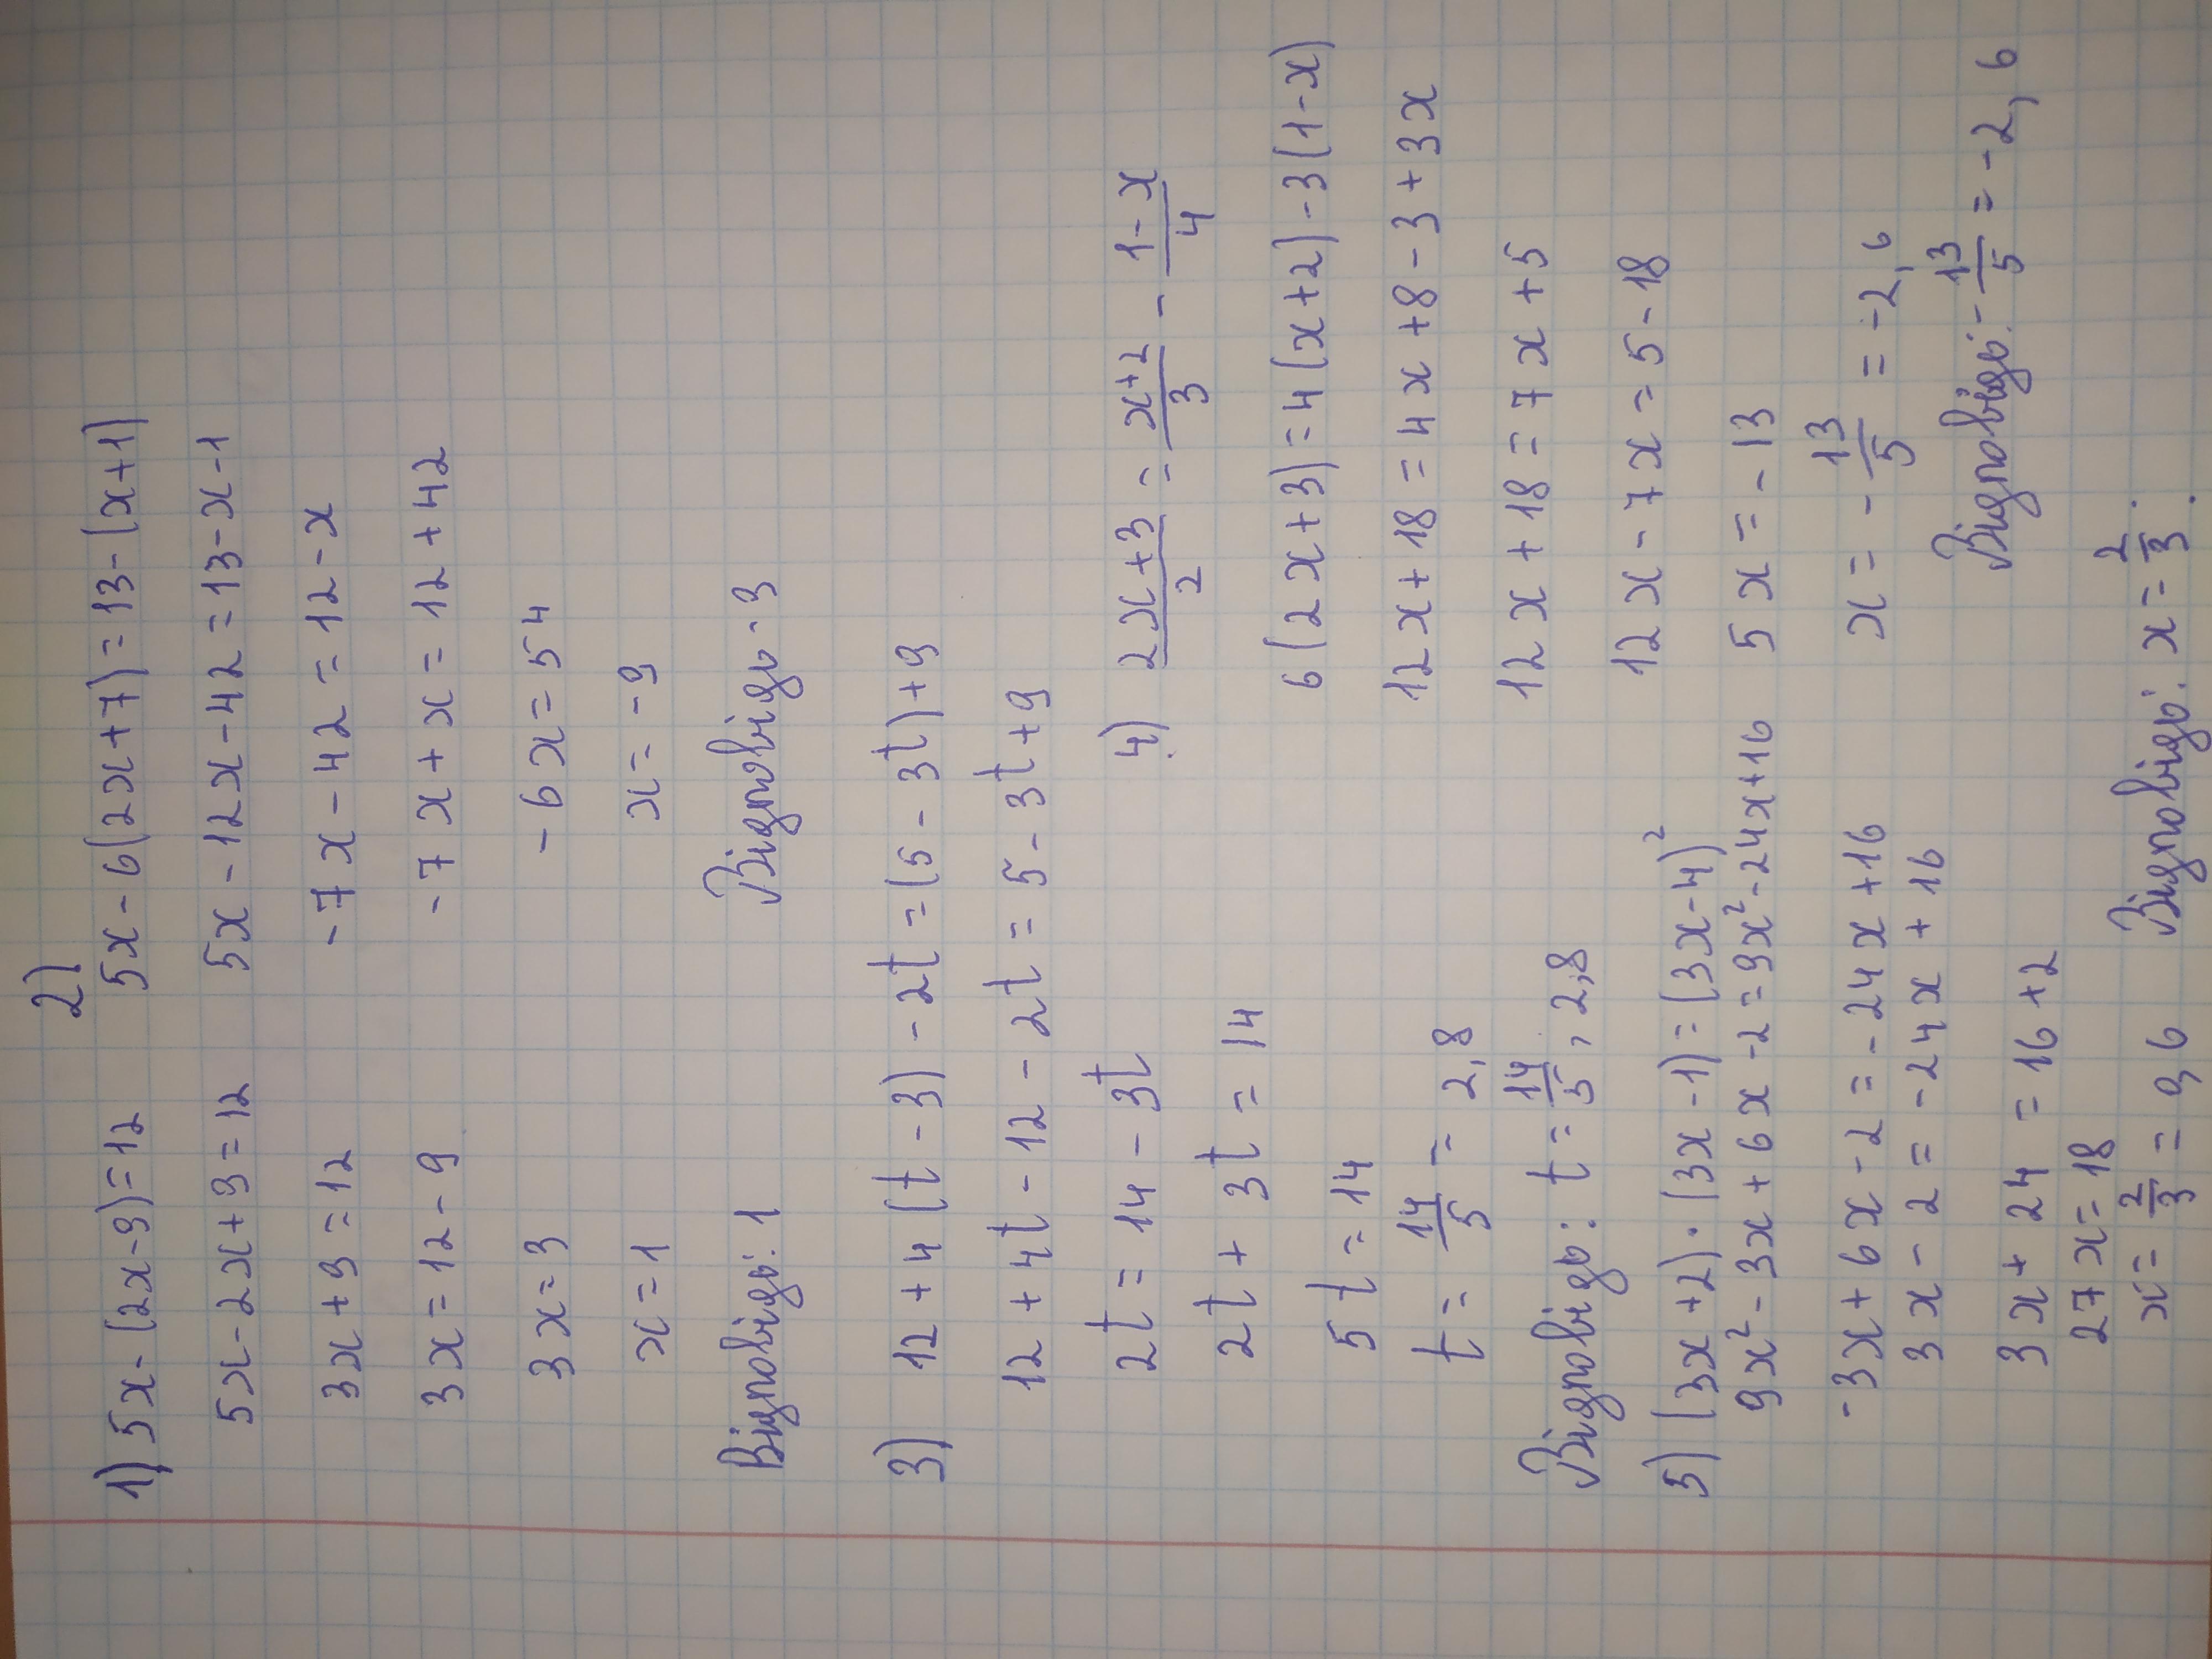 1) 5x-(2x-9)=12
5x-2x+9=12
3x+9=12
3x=12-9
3x=3
x=1
Відповідь: 1
2)
5x-6(2x+7)=13-(x+1)
5x-12x-42=13-x-1
-7x-42=12-x
-7x+x=12+42
-6x=54
x=-9
Відповідь -3
3) 12+4(t-3)-2t=(5-3t)+9
12+4t-12-2t=5-3t+9
2t=14-3t
2t+3t=14
5t=14
t=14/5=2,8
Відповідь: t=14/5, 2,8
4) (2x+3)/2=(x+2)/3-(1-x)/4
6(2x+3)=4(x+2)-3(1-x)
12x+18=4x+8-3+3x
12x+18=7x+5
12x-7x=5-18
5x=-13
x=-13/5=-2,6
Відповідь: -13/5=-2,6
5) (3x+2)·(3x-1)=(3x-4)²
9x²-3x+6x-2=9x²-24x+16
-3x+6x-2=-24x+16
3x-2=-24x+16
3x+24=16+2
27x=18
x=2/3=9,6
Відповідь: x=2/3.